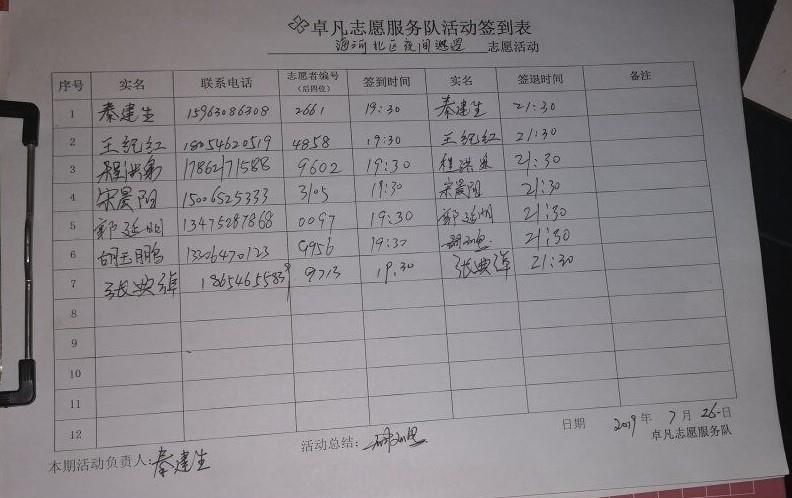 卓凡志愿服务队活动签到表
海河北区夜间巡逻 志愿活动
序号 实名 联系电话 志愿者编号（后四位） 签到时间 实名 签退时间 备注
1 秦建生 15963086308 2661 19:30 秦建生 21:30
2 王纪红 18054620519 4858 19:30 王纪红 21:30
3 17862171588 9602 19:30 21:30
4 宋晨阳 15006525333 3105 19:30 宋晨阳 21:30
5 郭延明 13475287868 0097 19:30 郭延明 21:30
6 胡玉鹏 13326470123 9956 19:30 21:30
7 张典绰 18654655839 9713 19:30 张典绰 21:30
8
9
10
11
12
本期活动负责人:秦建生 活动总结: 日期 2019年 7月 26日
卓凡志愿服务队